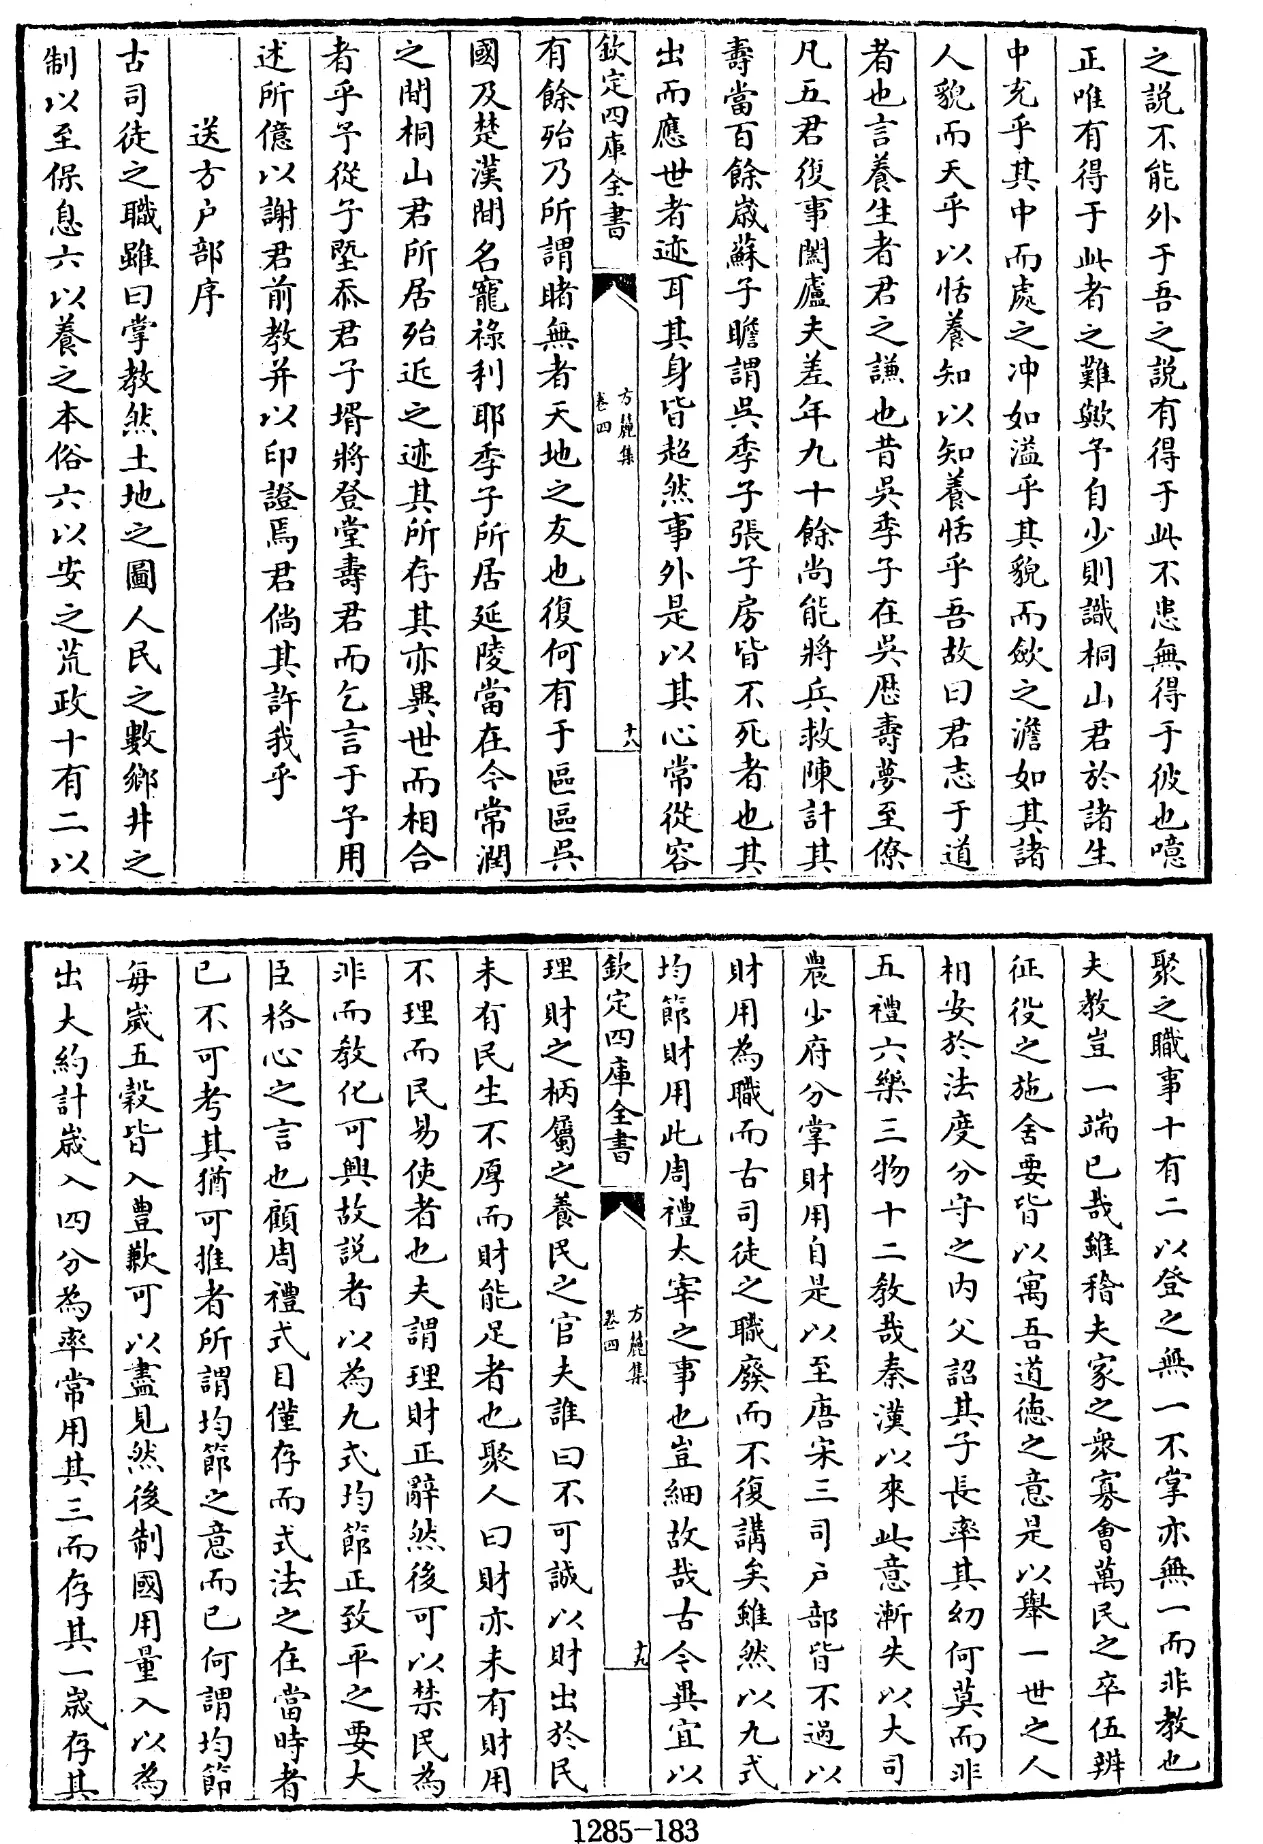 之說不能外于吾之說有得于此不患無得于彼也噫
正唯有得于此者之難歟予自少則識桐山君於諸生
中充乎其中而處之冲如溢乎其貌而斂之澹如其諸
人貌而天乎以恬養知以知養恬乎吾故曰君志于道
者也言養生者君之謙也昔吳季子在吳歴壽夢至僚
凡五君復事闔廬夫差年九十餘尚能將兵救陳計其
壽當百餘歲蘇子瞻謂吳季子張子房皆不死者也其
出而應世者迹耳其身皆超然事外是以其心常從容
欽定四庫全書
方麓集
卷四
十八
有餘殆乃所謂睹無者天地之友也復何有于區區吳
國及楚漢間名寵祿利耶季子所居延陵當在今常潤
之間桐山君所居殆近之迹其所存其亦異世而相合
者乎予從子塈忝君子壻將登堂壽君而乞言于予用
述所億以謝君前教并以印證焉君倘其許我乎
送方户部序
古司徒之職雖曰掌教然土地之圖人民之數鄉井之
制以至保息六以養之本俗六以安之荒政十有二以
聚之職事十有二以登之無一不掌亦無一而非教也
夫教豈一端已哉雖稽夫家之衆寡會萬民之卒伍辨
征役之施舍要皆以寓吾道德之意是以舉一世之人
相安於法度分守之内父詔其子長率其幼何莫而非
五禮六樂三物十二教哉秦漢以來此意漸失以大司
農少府分掌財用自是以至唐宋三司户部皆不過以
財用為職而古司徒之職廢而不復講矣雖然以九式
均節財用此周禮太宰之事也豈細故哉古今異宜以
欽定四庫全書
方麓集
卷四
十九
理財之柄屬之養民之官夫誰曰不可誠以財出於民
未有民生不厚而財能足者也聚人曰財亦未有財用
不理而民易使者也夫謂理財正辭然後可以禁民為
非而教化可興故說者以為九式均節正致平之要大
臣格心之言也顧周禮式目僅存而式法之在當時者
已不可考其猶可推者所謂均節之意而已何謂均節
每歲五穀皆入豊歉可以盡見然後制國用量入以為
出大約計歲入四分為率常用其三而存其一歲存其
1285-183